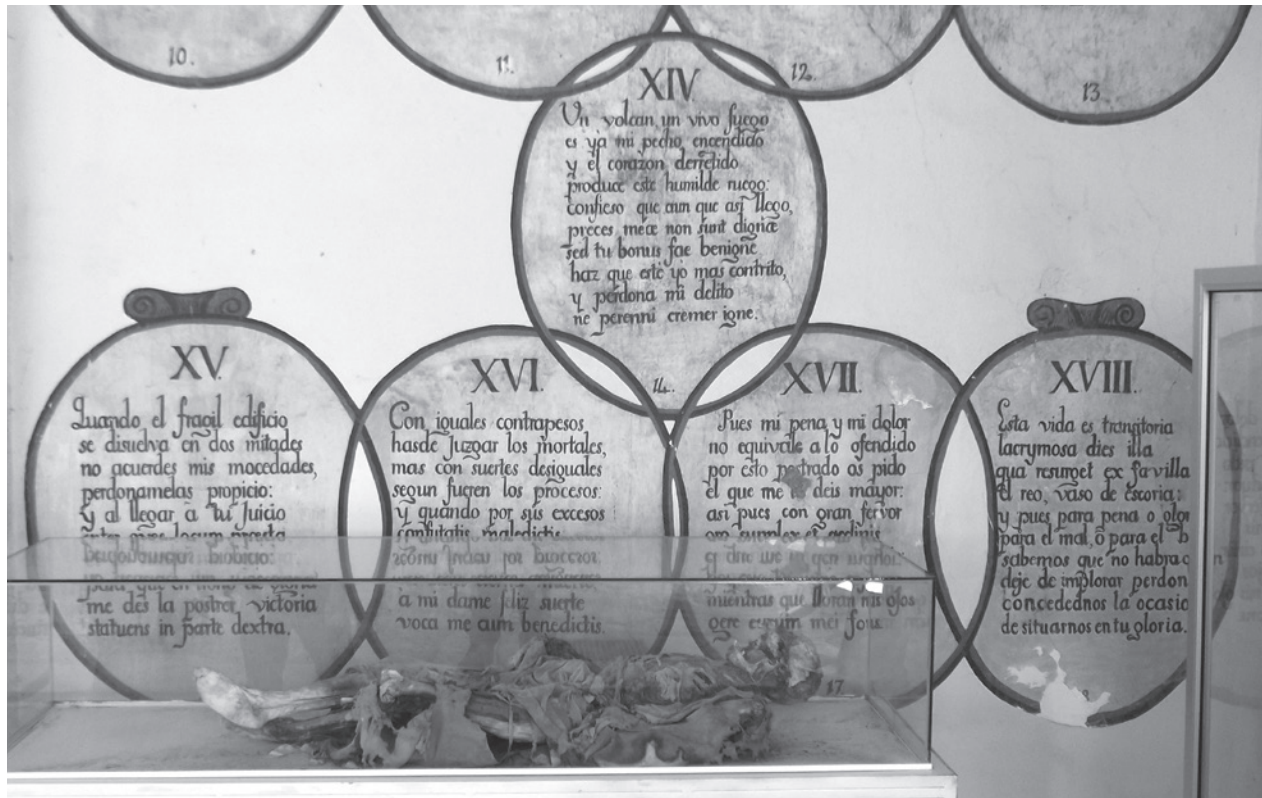 10.
11.
12.
13
XIV
Un volcan un vivo fuego
es ya mi pecho encendido
y el corazon derretido
produce este humilde ruego:
confieso que aun que asi llego,
preces meæ non sunt dignæ
sed tu bonus fac benigne
haz que esté yo mas contrito,
y perdona mi delito
ne perenni cremer igne.
14.
XV.
Quando el fragil edificio
se disuelva en dos mitades
no acuerdes mis mocedades,
perdonamelas propicio:
y al llegar à tu Juicio
inter oves locum
me dés la postrer victoria
statuens in parte dextra.
XVI.
Con iguales contrapesos
hasde Juzgar los mortales,
mas con suertes desiguales
segun fueren los procesos:
y quando por sus excesos
confutatis maledictis
a mi dame feliz suerte
voca me cum benedictis.
XVII
Pues mi pena y mi dolor
no equivale a lo ofendido
por esto postrado os pido
el que me deis mayor:
asi pues con gran fervor
oro supplex et acclinis
mientras que lloran mis ojos
gere curam mei
17
XVIII.
Esta vida es trancitoria
lacrymosa dies illa
qua resurget ex favilla
el reo, vaso de escoria:
y pues para pena o
para el mal, ô para el
sabemos que no habra
deje de implorar perdon
concedednos la ocasio
de situarnos en tu gloria.